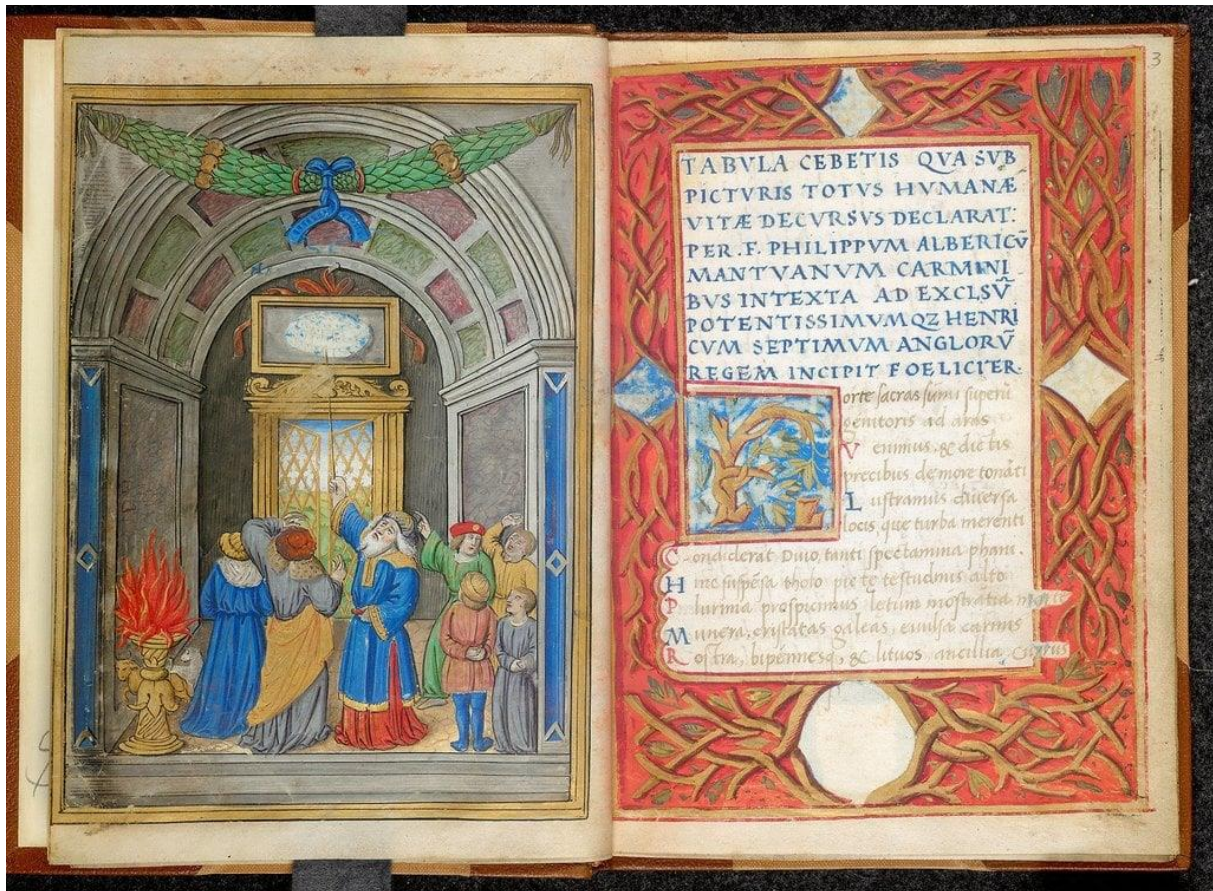 3
TABVLA CEBETIS QVA SVB
PICTVRIS TOTVS HVMANÆ
VITÆ DECVRSVS DECLARAT:
PER .F. PHILIPPVM ALBERICV̄
MANTVANVM CARMINI
BVS INTEXTA AD EXCLSV̄
POTENTISSIMVMQZ HENRI
CVM SEPTIMVM ANGLORV̄
REGEM INCIPIT FOELICITER.
orte sacras sūmi superū
genitoris ad aras
V enimus, & dictis
precibus de more tonāti
L ustramus diuersa
locis, que turba merenti
C ondiderat Diuo, tanti spectamina phani.
H inc suspēsa tholo pie te testudinis alto
P lurima prospicimus letum mōstrātia
M unera, cristatas galeas, euulsa carinis
R ostra, bipennesq, & lituos ancillia